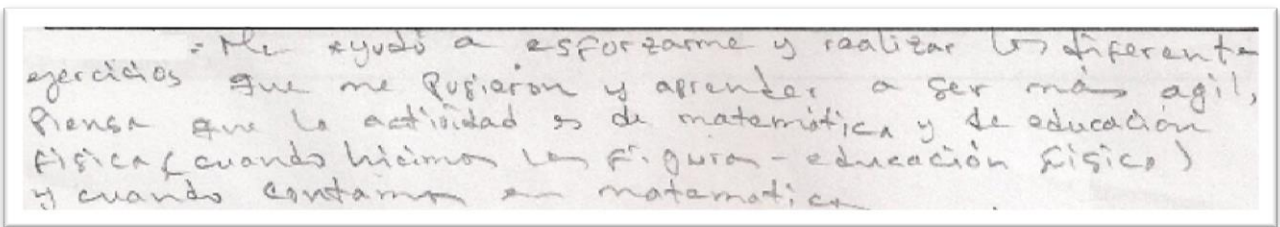 - Me ayudó a esforzarme y realizar los diferente
ejercicios que me pusieron y aprender a ser más agil,
Piensa que la actividad es de matemática y de educación
física (cuando hicimos las figuras - educación física)
y cuando contamos en matematica.